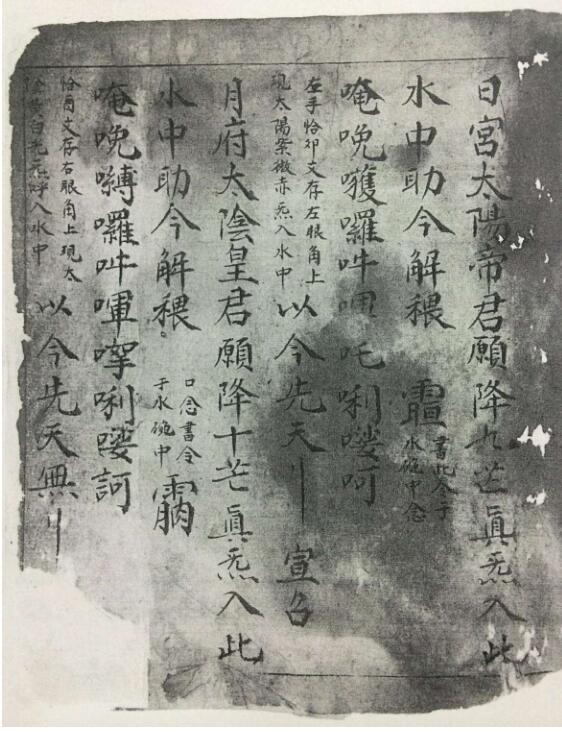 日宮太陽帝君願降九芒眞炁入此
水中助今解穢
書此令于
水碗中念
唵晚嚄囉吽吒唎嘙呵
左手恰卯文存左眼角上
現太陽紫微赤炁入水中
以今先天〢 宣召
月府太陰皇君願降十芒眞炁入此
水中助今解穢。
口念書令
于水碗中
唵晚嚩囉吽唎嘙訶
恰酉文存右眼角上現太
白光炁呼入水中
以今先天無〢